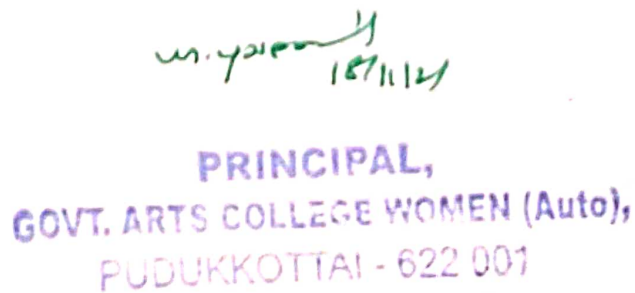 18/11/21
PRINCIPAL,
GOVT. ARTS COLLEGE WOMEN (Auto),
PUDUKKOTTAI - 622 001